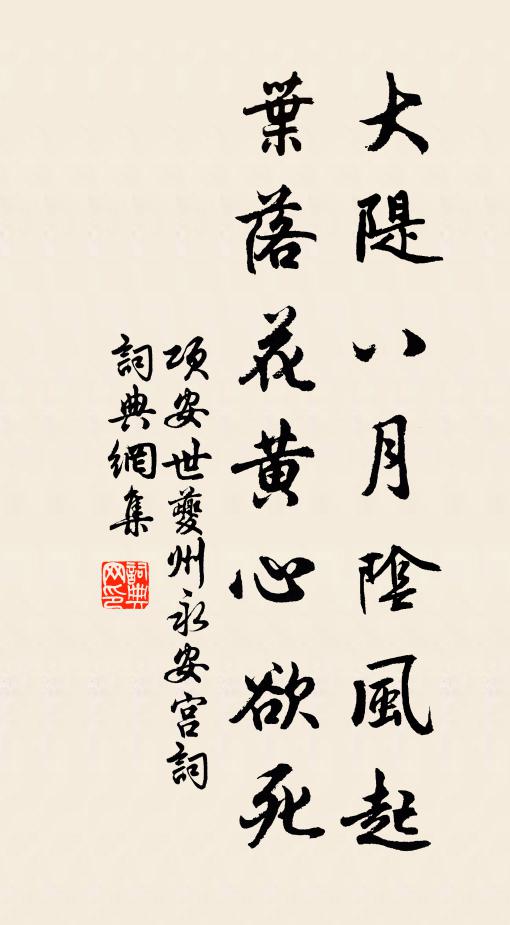 大隄八月陰風起
葉落花黄心欲死
項安世夔州永安宮詞
詞典網集
詞典
网印